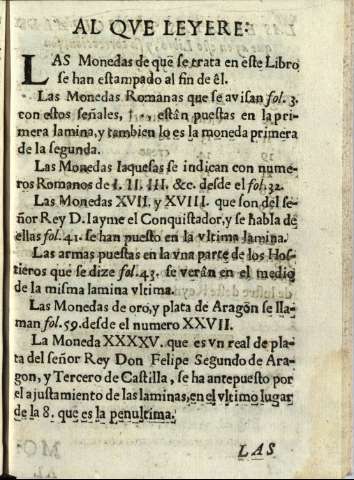 AL QVE LEYERE:
LAS Monedas de que se trata en este Libro
se han estampado al fin de êl.
Las Monedas Romanas que se avisan fol. 3.
con estos señales, están puestas en la pri-
mera lamina, y tambien lo es la moneda primera
de la segunda.
Las Monedas Iaquesas se indican con nume-
ros Romanos de I. II. III. &c. desde el fol. 32.
Las Monedas XVII. y XVIII. que son del se-
ñor Rey D. Iayme el Conquistador, y se habla de
ellas fol. 41. se han puesto en la vltima lamina.
Las armas puestas en la vna parte de los Hos-
tieros que se dize fol. 43. se verân en el medio
de la misma lamina vltima.
Las Monedas de oro, y plata de Aragõn se lla-
man fol. 59. desde el numero XXVII.
La Moneda XXXXV. que es vn real de pla-
ta del señor Rey Don Felipe Segundo de Ara-
gon, y Tercero de Castilla, se ha antepuesto por
el ajustamiento de las laminas, en el vltimo lugar
de la 8. que es la penultima.
LAS